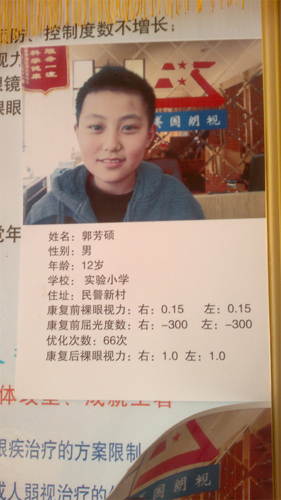 防、控制度数不增长;
视力
眼镜
裸眼
服务一流
科学执業
美国朗视
姓名:郭芳硕
性别:男
年龄:12岁
学校: 实验小学
住址: 民警新村
康复前裸眼视力:右: 0.15 左: 0.15
康复前屈光度数:右: -300 左: -300
优化次数: 66次
康复后裸眼视力:右: 1.0 左: 1.0
眼疾治疗的方案限制
成人弱视治疗的
美国朗视